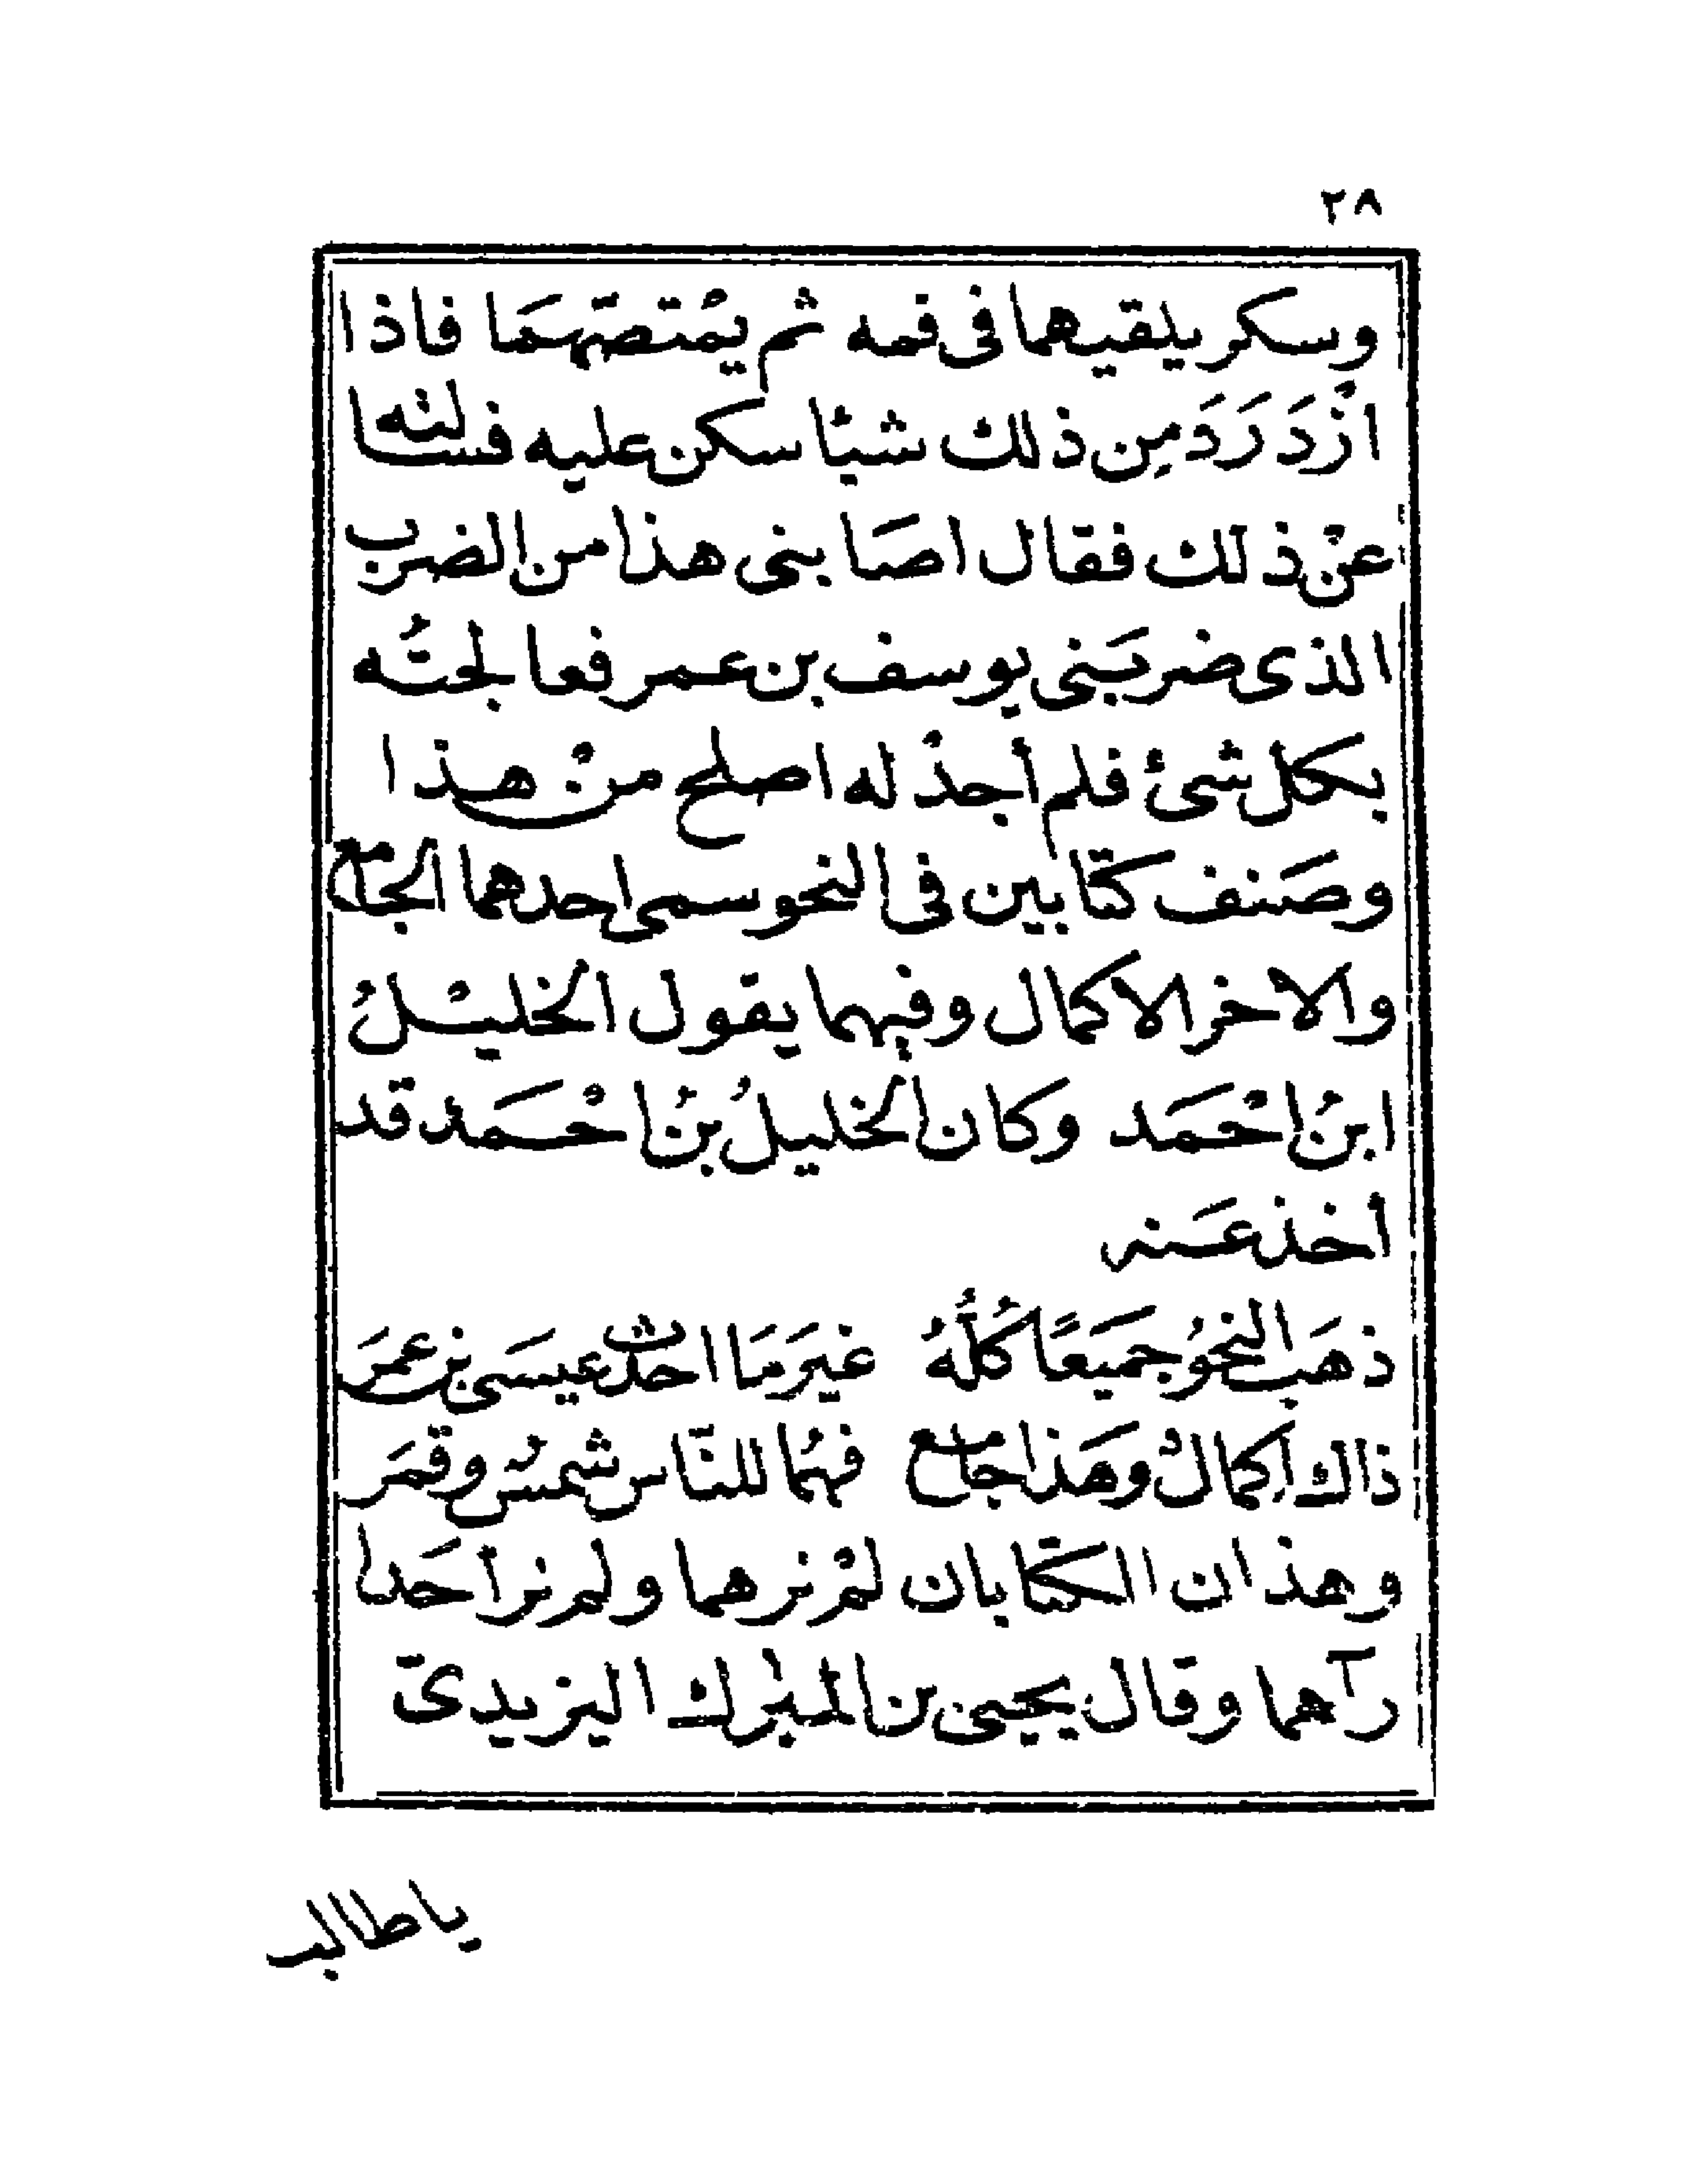 ٢٨
وسكر يلقيهما فى فمه ثم يمْتصّهمَا فاذا
ازْدَرَدَ مِن ذلك شيئا سكن عليه فسالته
عنْ ذلك فقال اصَابنى هذا من الضرب
الذى ضربَنى يوسف بن عمر فعالجتُه
بكل شئ فلم أجدْ له اصلح منْ هذا
وصَنف كتابين فى النحو سمى احدهما الجامع
والاخر الاكمال وفيهما يقول الخليْلُ
ابنُ احْمَد وكان الخليلُ بنُ احْمَد قد
أخذ عَنه
ذهَب النحوُ جميَعًا كُلُّهُ غيَرَ مَا احدث عيسَى بن عمَرَ
ذاك إكمالٌ وهَذا جامع فهُما للنّاس شمسٌ وقمَر
وهذان الكتابان لمْ نرهما ولم نر أحَدا
رآهما وقال يحيى بن المبارك اليزيدىّ
ياطالب